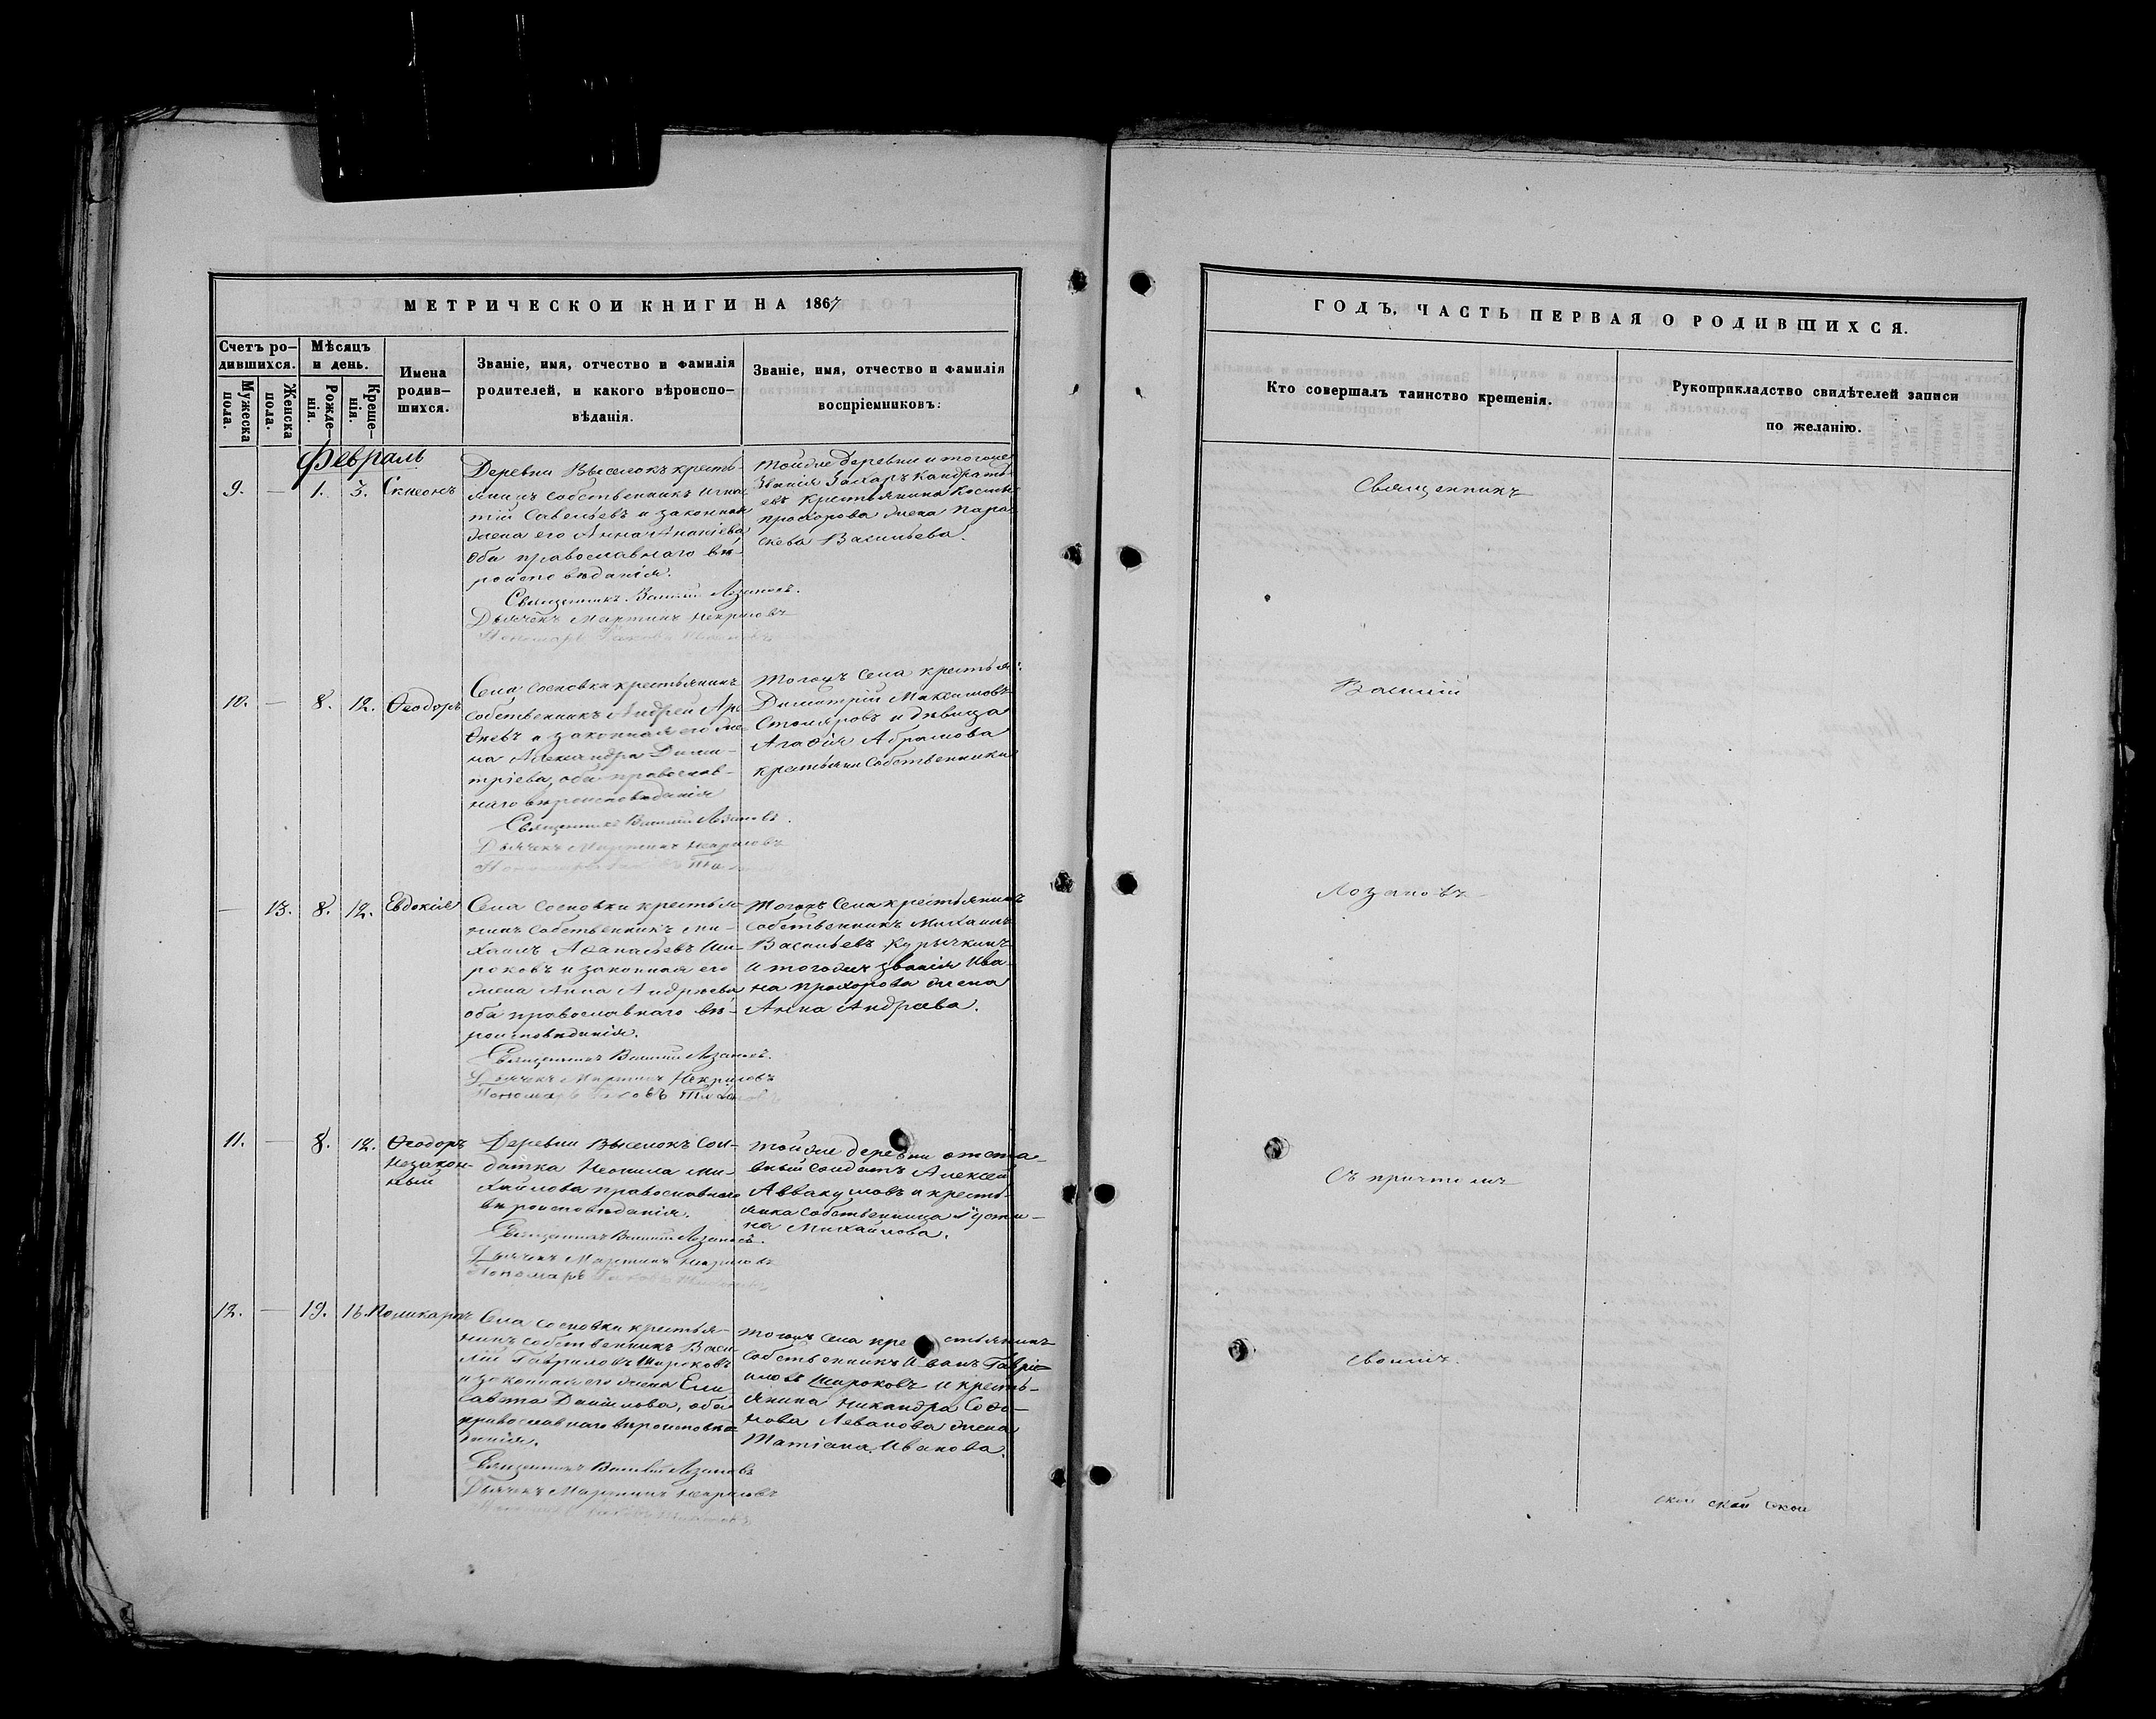 МЕТРИЧЕСКОЙ КНИГИ НА 1867
Счетъ ро-
дившихся.
Мѣсяцъ
и день.
Мужеска
пола.
Женска
пола.
Рожде-
нія.
Креще-
нія.
Имена
родив-
шихся.
Званіе, имя, отчество и фамилія
родителей, и какого вѣроиспо-
вѣданія.
Званіе, имя, отчество и фамилія
воспріемниковъ:
Февраль
9. — 1. 3. Симеонъ
Деревни Выселокъ кресть-
янинъ собственникъ Игна-
тій Савельевъ и законная
жена его Анна Ананіева
оба православнаго вѣ-
роисповѣданія.
Священникъ Василій Лозановъ.
Дьячекъ Мартинъ Некрасовъ
Пономарь Іаковъ
Тойже деревни и тогоже
званія Захаръ Кандрать-
евъ крестьянина Космы
Прохорова жена Пара-
скева Васильева.
10. — 8. 12. Ѳеодоръ
Села Сосновки крестьянинъ
собственникъ Андрей
и законная его же-
на Александра Дими-
тріева, оба православ-
наго вѣроисповѣданія
Священникъ Василій Лозановъ.
Дьячекъ Мартинъ Некрасовъ
Пономарь
Тогожъ села крестьян:
Димитрій Максимовъ
Столяровъ и дѣвица
Агаѳія Абрамова
крестьяни собственники
— 13. 8. 12. Евдокія
Села Сосновки крестья-
нинъ собственникъ Ми-
хаилъ Аѳанасьевъ Ши-
роковъ и законная его
жена Анна Андреева,
оба православнаго вѣ-
роисповѣданія.
Священникъ Василій Лозановъ.
Дьячекъ Мартинъ Некрасовъ
Пономарь Іаковъ
Тогожъ села крестьянинъ
собственникъ Михаилъ
Васильевъ Курычкинъ
и тогожъ званія Ива-
на Прохорова жена
Анна Андреева.
11. — 8. 12. Ѳеодоръ
незакон-
ный
Деревни Выселокъ сол-
датка Неонила Ми-
хайлова православнаго
вѣроисповѣданія.
Священникъ Василій Лозановъ.
Дьячекъ Мартинъ Некрасовъ
Пономарь Іаковъ
Тойже деревни отста-
вный солдатъ Алексей
Аввакумовъ и кресть-
янка собственница Густи-
на Михайлова.
12. — 19. 16. Поликарпъ
Села Сосновки крестья-
нинъ собственникъ Васи-
лій Гавриловъ Широковъ
и законная его жена Ели-
савета Даніилова, оба
православнаго вѣроисповѣ-
данія.
Священникъ Василій Лозановъ
Дьячекъ Мартинъ Некрасовъ
Тогожъ села крестьянинъ
собственникъ Иванъ Гаврі-
иловъ Широковъ и кресть-
янина Никандра Софо-
нова Леванова жена
Татіана Иванова.
ГОДЪ, ЧАСТЬ ПЕРВАЯ О РОДИВШИХСЯ.
Кто совершалъ таинство крещенія.
Рукоприкладство свидѣтелей записи
по желанію.
Священникъ
Василій
Лозановъ
Съ причтомъ
своимъ.
ской ской ской